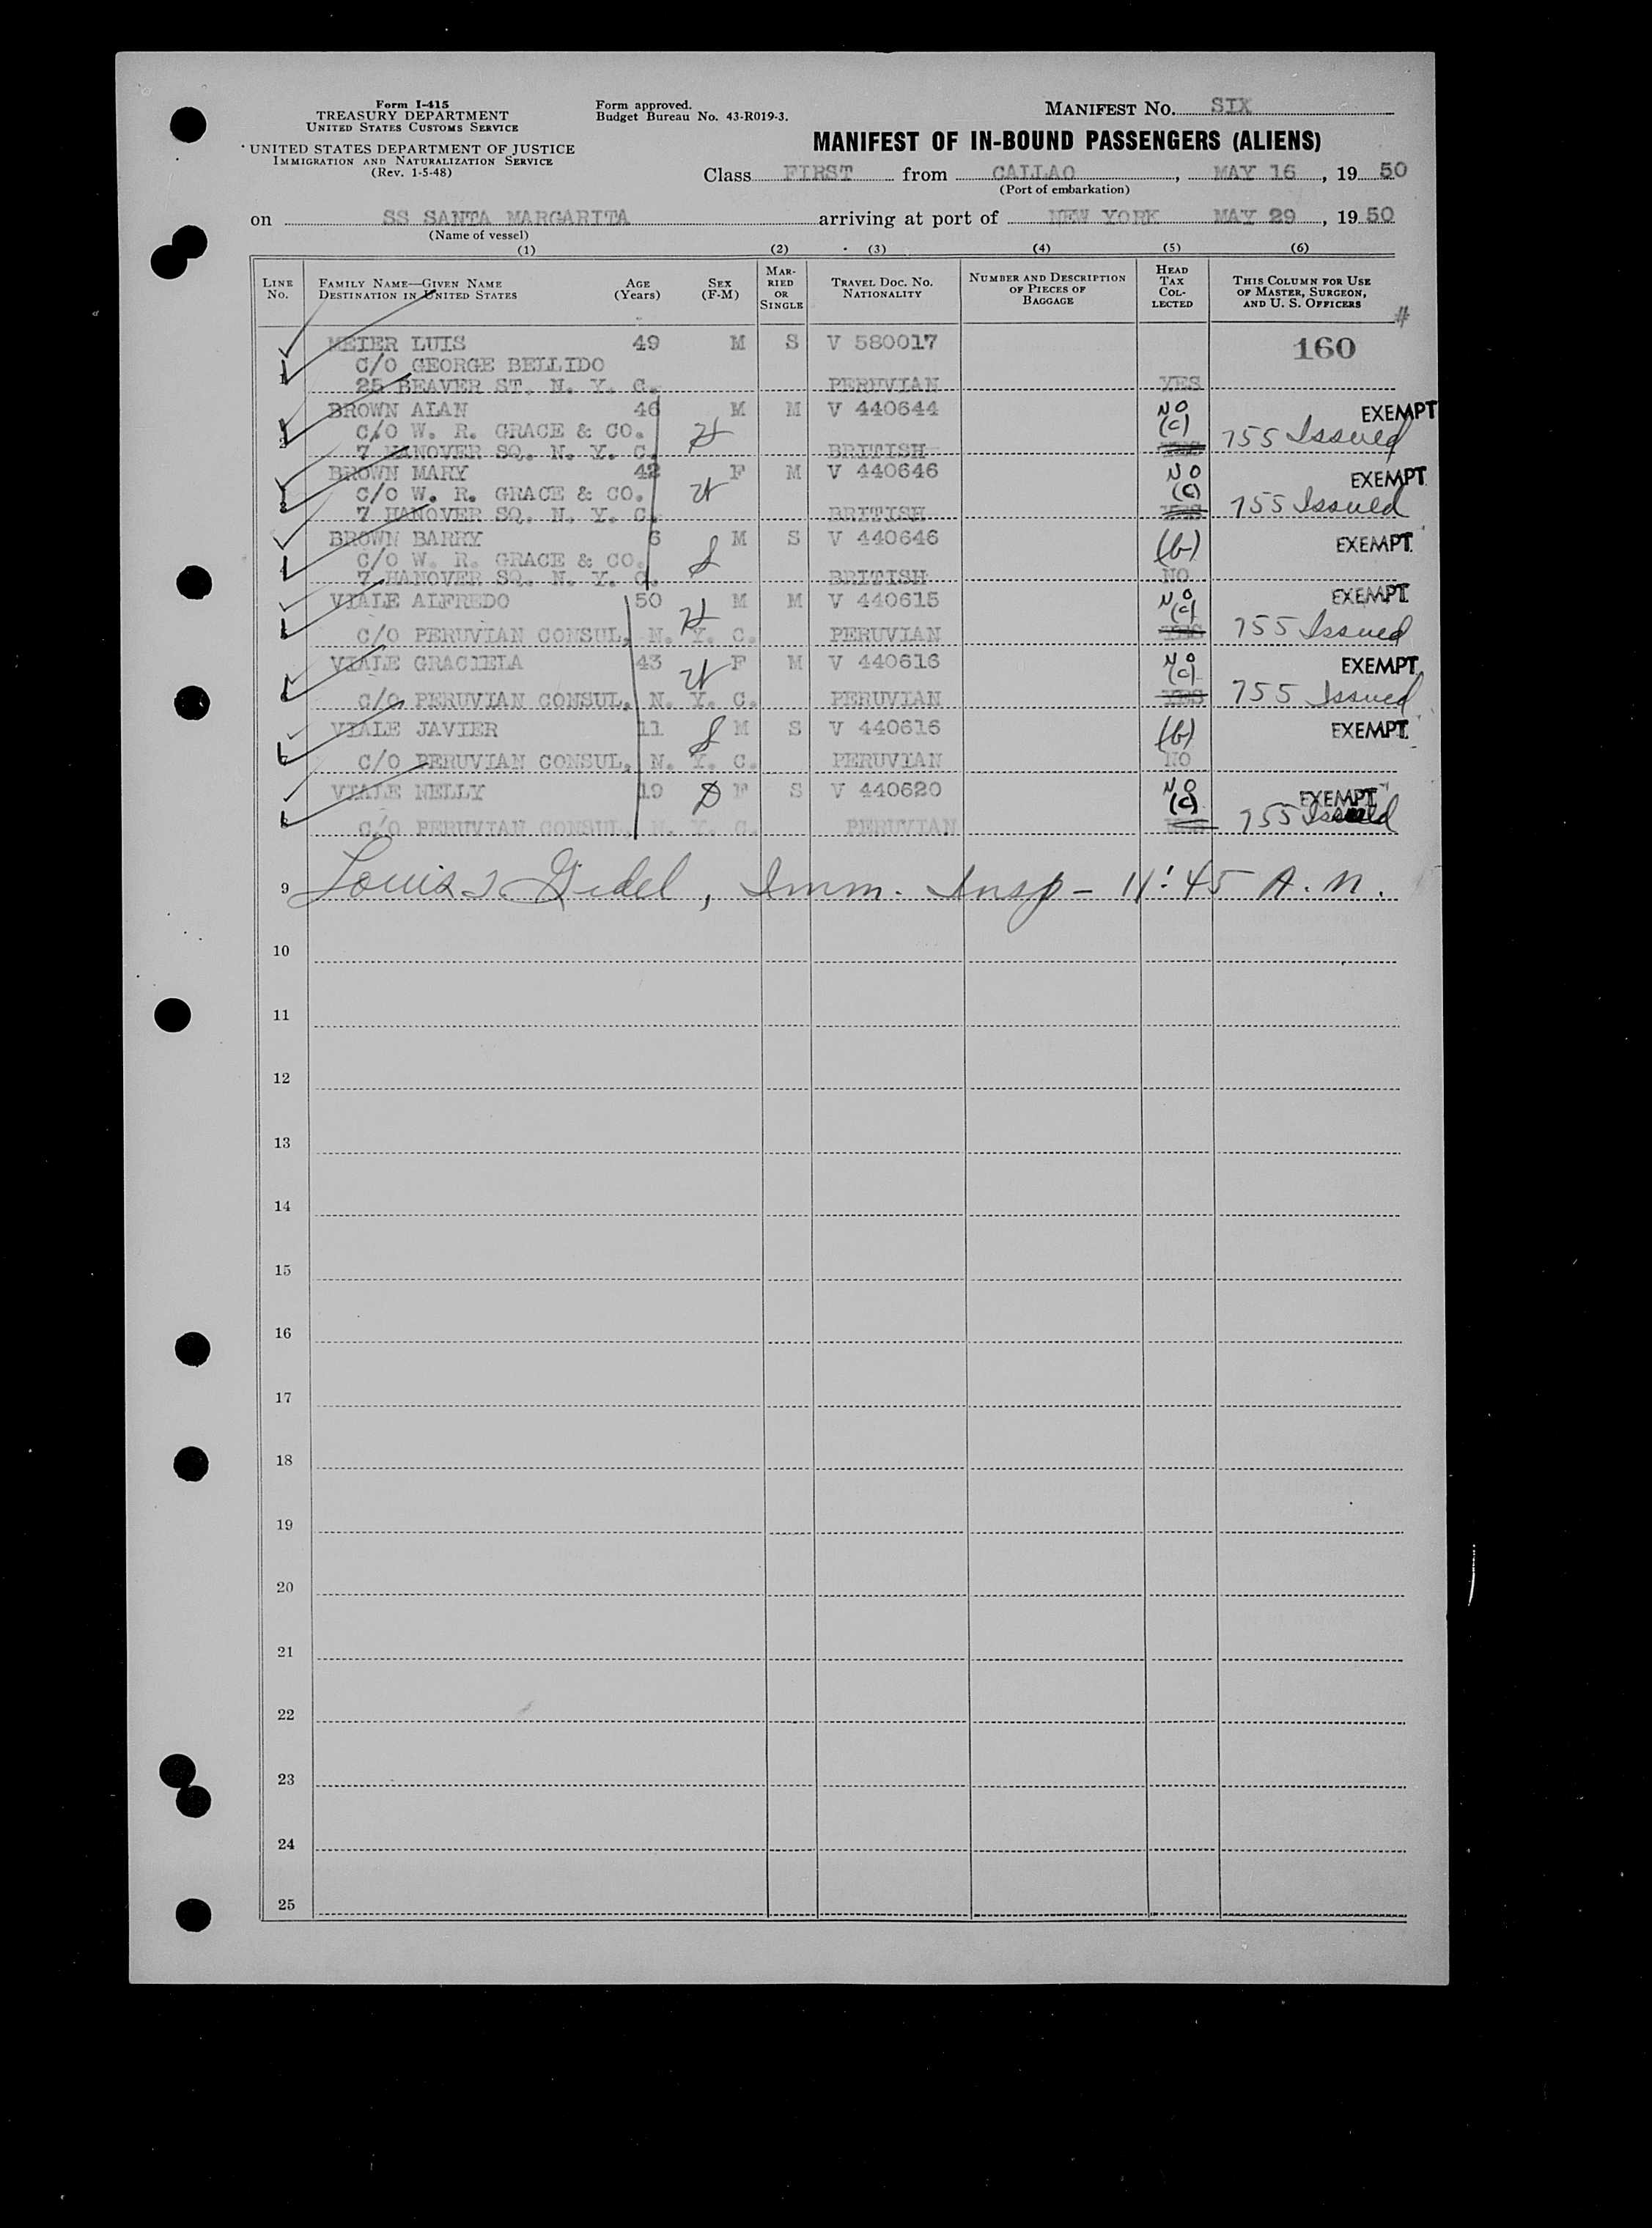 Form I-415
TREASURY DEPARTMENT
UNITED STATES CUSTOMS SERVICE
UNITED STATES DEPARTMENT OF JUSTICE
IMMIGRATION AND NATURALIZATION SERVICE
(Rev. 1-5-48)
Form approved.
Budget Bureau No. 43-R019-3.
MANIFEST NO. SIX
MANIFEST OF IN-BOUND PASSENGERS (ALIENS)
Class FIRST from CALLAO, MAY 16, 19 50
(Port of embarkation)
on SS SANTA MARGARITA arriving at port of NEW YORK MAY 29, 19 50
(Name of vessel)
(1) (2) (3) (4) (5) (6)
LINE NO. FAMILY NAME—GIVEN NAME DESTINATION IN UNITED STATES AGE (Years) SEX (F-M) MARRIED OR SINGLE TRAVEL DOC. NO. NATIONALITY NUMBER AND DESCRIPTION OF PIECES OF BAGGAGE HEAD TAX COLLECTED THIS COLUMN FOR USE OF MASTER, SURGEON, AND U. S. OFFICERS
#
MEIER LUIS 49 M S V 580017 160
C/O GEORGE BELLIDO
1 25 BEAVER ST. N. Y. C. PERUVIAN YES
BROWN ALAN 46 M M V 440644 NO EXEMPT
C/O W. R. GRACE & CO. (c) 755 Issued
2 7 HANOVER SQ. N. Y. C. BRITISH YES
BROWN MARY 42 F M V 440646 NO EXEMPT
C/O W. R. GRACE & CO. (c) 755 Issued
3 7 HANOVER SQ. N. Y. C. BRITISH YES
BROWN BARRY 6 M S V 440646 (b) EXEMPT
C/O W. R. GRACE & CO.
4 7 HANOVER SQ. N. Y. C. BRITISH NO
VIALE ALFREDO 50 M M V 440615 NO (c) EXEMPT
5 C/O PERUVIAN CONSUL, N. Y. C. PERUVIAN YES 755 Issued
VIALE GRACIELA 43 F M V 440616 NO (c) EXEMPT
6 C/O PERUVIAN CONSUL, N. Y. C. PERUVIAN YES 755 Issued
VIALE JAVIER 11 M S V 440616 (b) EXEMPT
7 C/O PERUVIAN CONSUL, N. Y. C. PERUVIAN NO
VIALE NELLY 19 F S V 440620 NO (c) EXEMPT
8 C/O PERUVIAN CONSUL, N. Y. C. PERUVIAN 755 Issued
9 Louis Gidel, Imm. Insp - 11:45 A.M.
10
11
12
13
14
15
16
17
18
19
20
21
22
23
24
25